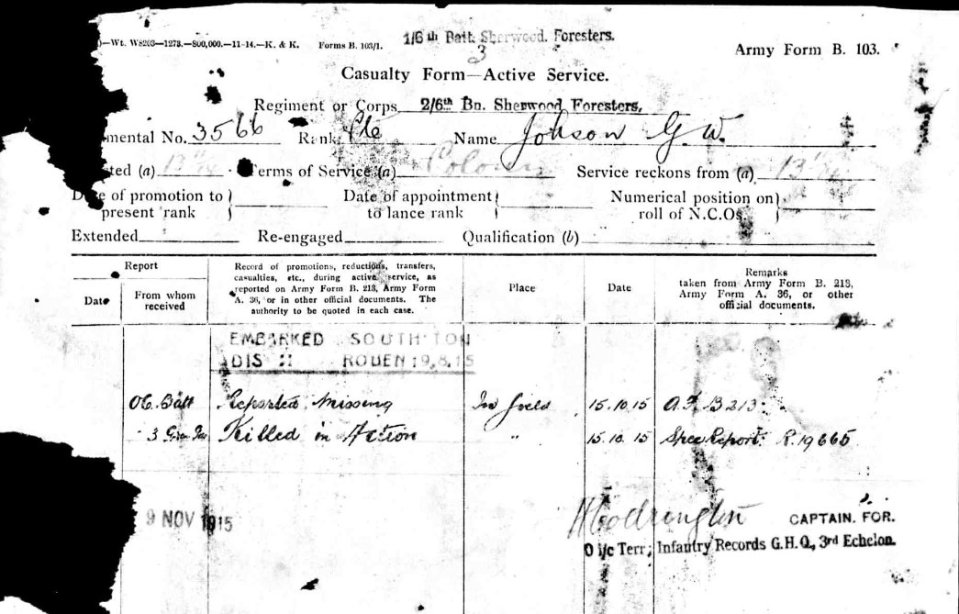 )—Wt. W8203—1273.—800,000.—11-14.—K. & K. Forms B. 103/1.
1/6th Batt. Sherwood. Foresters.
3
Army Form B. 103.
Casualty Form—Active Service.
Regiment or Corps 2/6th Bn. Sherwood Foresters,
mental No. 3566 Rank Pte Name Johson G. W.
ted (a) Terms of Service (a) Service reckons from (a)
Date of promotion to present rank
Date of appointment to lance rank
Numerical position on roll of N.C.Os.
Extended Re-engaged Qualification (b)
Report
Date
From whom received
Record of promotions, reductions, transfers,
casualties, etc., during active service, as
reported on Army Form B. 213, Army Form
A. 36, or in other official documents. The
authority to be quoted in each case.
Place
Date
Remarks
taken from Army Form B. 213,
Army Form A. 36, or other
official documents.
EMBARKED SOUTH'TON
DIS ROUEN 19.8.15
OC. Batt Reported Missing In Field 15.10.15 A.F. B213.
3 Killed in Action " 15.10.15 Spec Report. R. 19665
9 NOV 1915
CAPTAIN. FOR.
O i/c Terr; Infantry Records G.H.Q., 3rd Echelon.